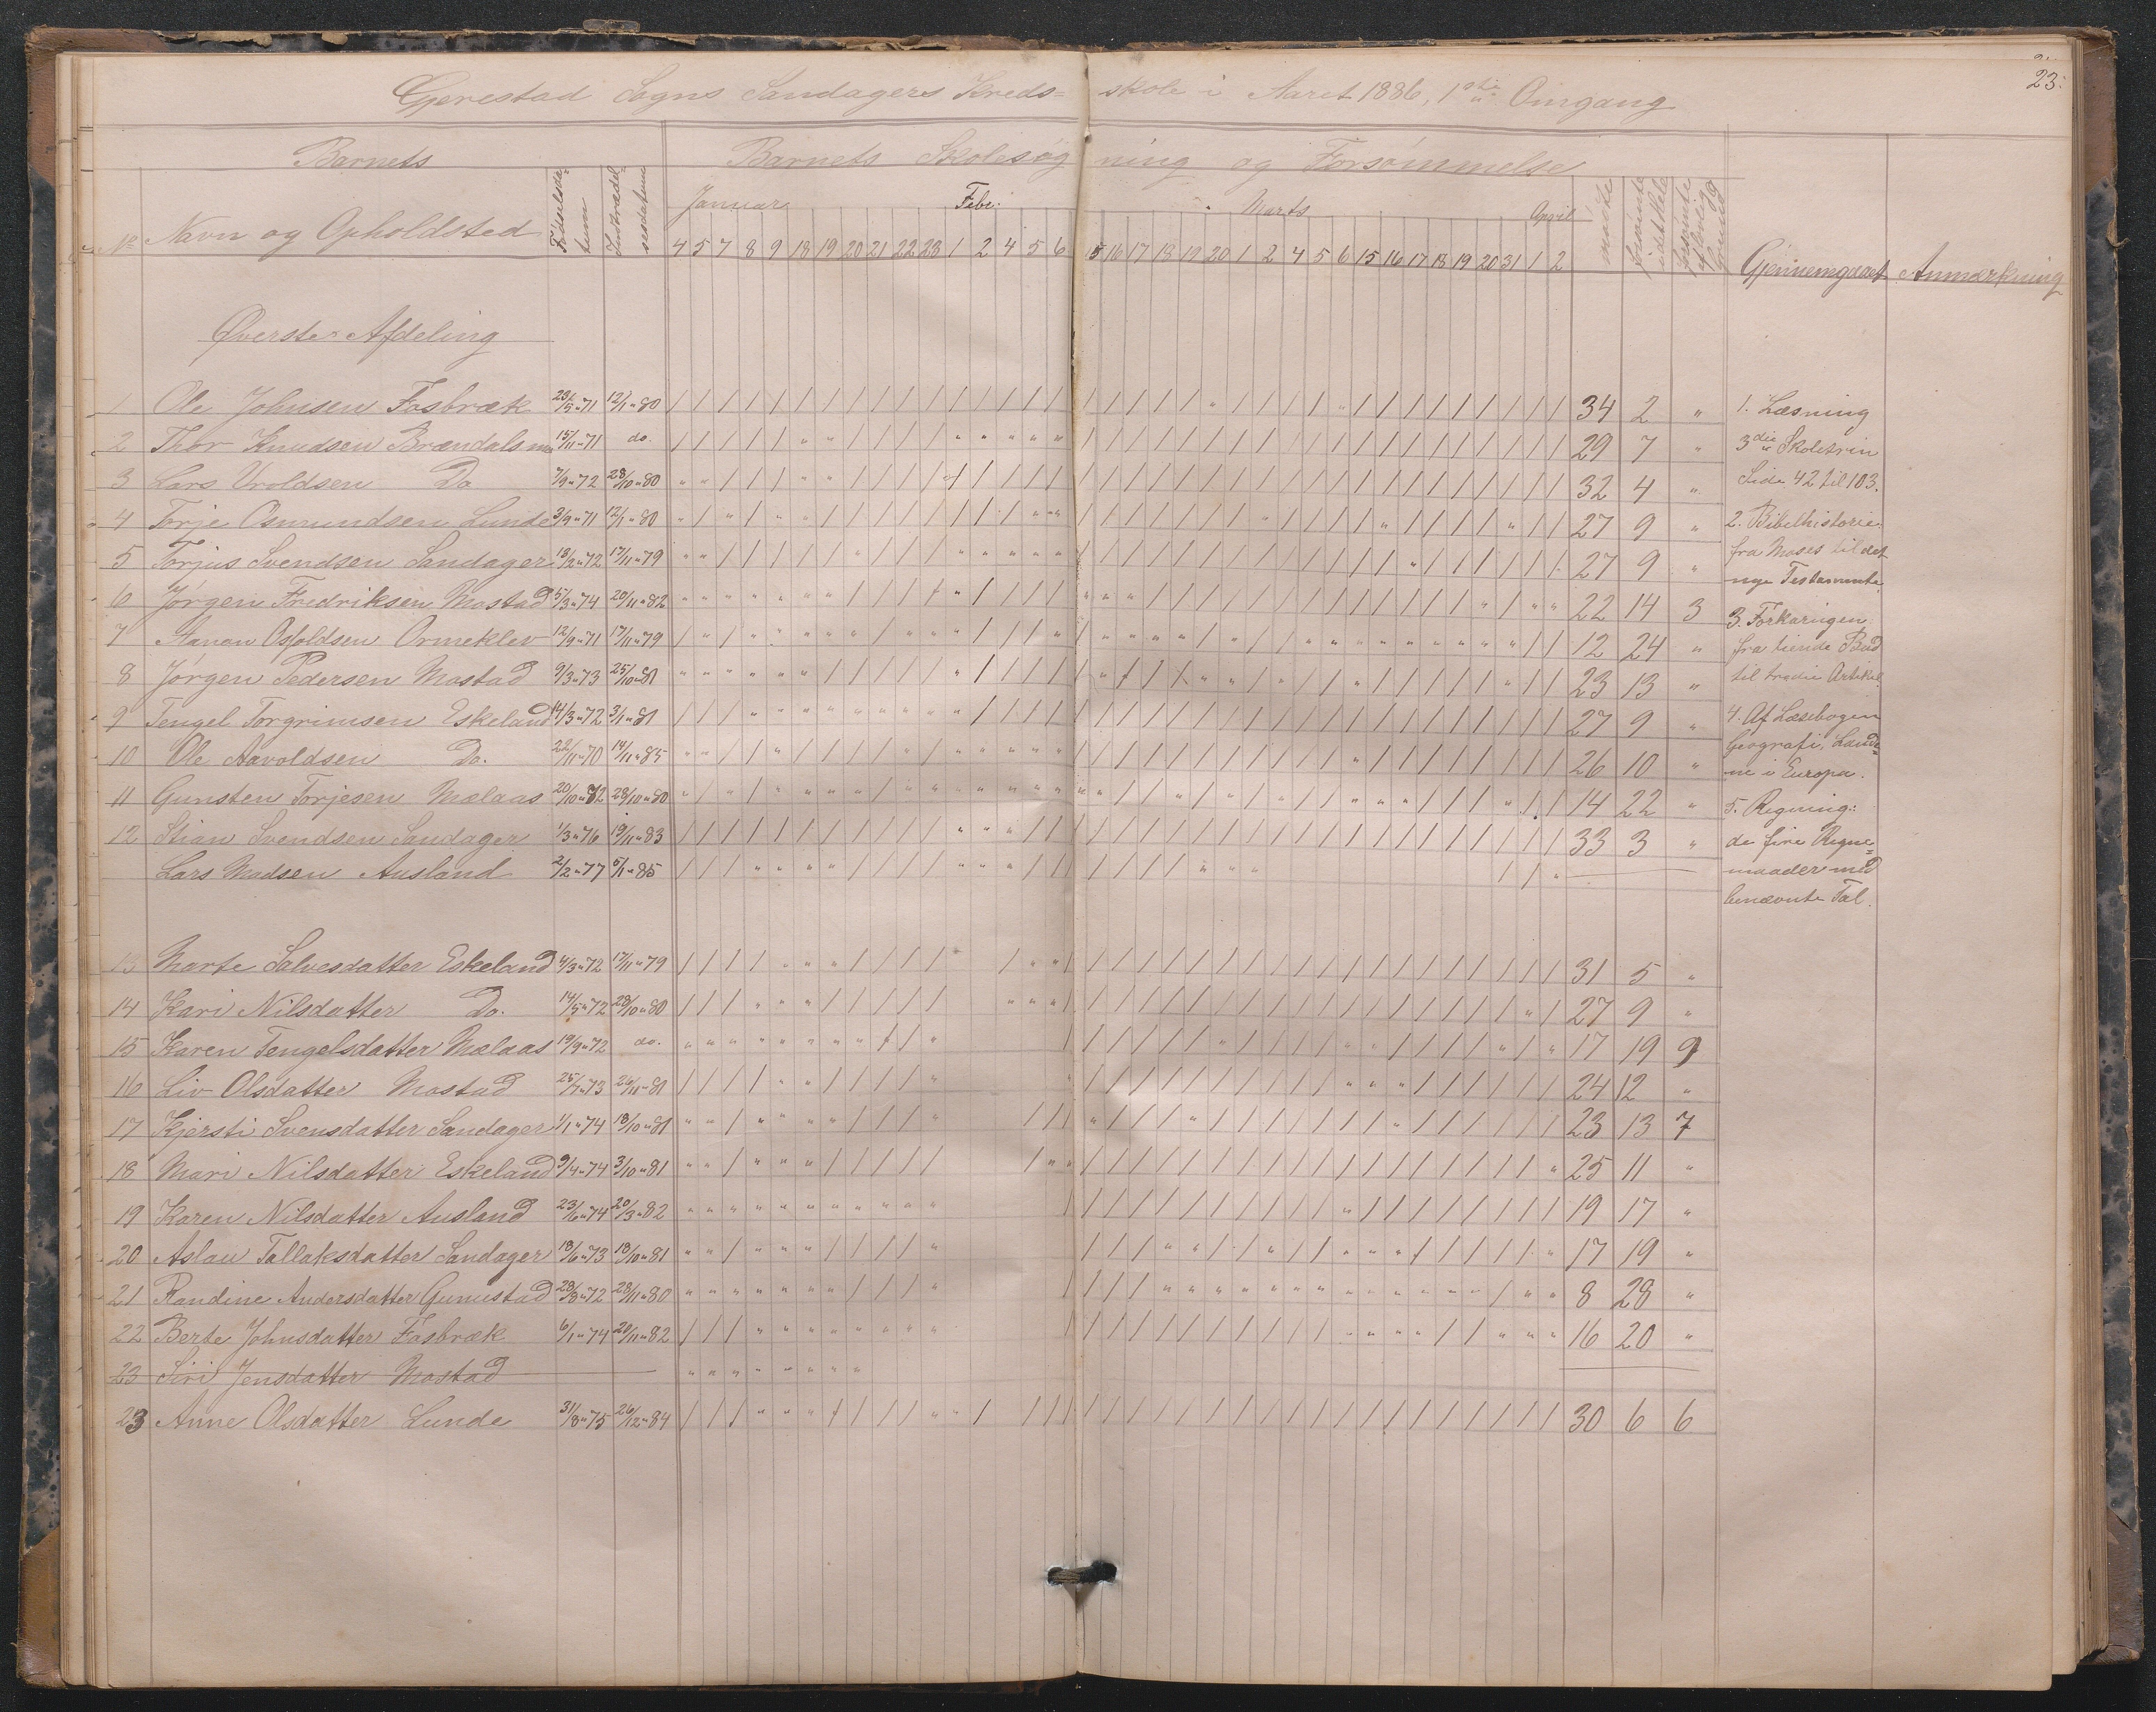 23.
Gjerestad Sogns Sandagers Kreds= skole i Aaret 1886, 1ste Omgang
Barnets Barnets Skolesøg ning og Forsømmelse
No Navn og Opholdsted Fødselsda- tum Indtrædel- sesdatum Januar Febr. Marts April mødte forsømte i det Hele forsømte af lovlig Grund Gjennemgaaet Anmærkning
4 5 7 8 9 18 19 20 21 22 23 1 2 4 5 6 15 16 17 18 19 20 1 2 4 5 6 15 16 17 18 19 20 31 1 2
Øverste Afdeling
1 Ole Johnsen Fosbræk 23/5 " 71 12/1 " 80 34 2 " 1. Læsning
2 Thor Knudsen Brændalsmo 15/11 " 71 do. 29 7 " 3die Skoletrin
3 Lars Vroldsen Do 7/9 " 72 28/10 " 80 32 4 " Side 42 til 103.
4 Torje Osmundsen Lunde 3/9 " 71 12/1 " 80 27 9 " 2. Bibelhistorie:
5 Torjus Svendsen Sandager 18/2 " 72 17/11 " 79 27 9 " fra Moses til det
6 Jørgen Fredriksen Mostad 5/3 " 74 20/11 " 82 22 14 3 nye Testamente.
3. Forklaringen
7 Aanon Osfoldsen Ormeklev 12/9 " 71 17/11 " 79 12 24 " fra tiende Bud
8 Jørgen Pedersen Mostad 9/3 " 73 25/10 " 81 23 13 " til tredie Artikel.
9 Tengel Torgrimsen Eskeland 14/3 " 72 3/1 " 81 27 9 " 4. Af Læsebogen
10 Ole Aavoldsen Do. 22/11 " 70 14/11 " 85 26 10 " Geografi, Lande=
ne i Europa.
11 Gunsten Torjesen Mælaas 20/10 " 72 28/10 " 80 14 22 " 5. Regning:
12 Stian Svendsen Sandager 1/3 " 76 19/11 " 83 33 3 " de fire Regne=
Lars Madsen Ausland 2/2 " 77 5/1 " 85 maader med
benævnte Tal.
13 Marte Salvesdatter Eskeland 4/3 " 72 17/11 " 79 31 5 "
14 Kari Nilsdatter Do. 14/5 " 72 28/10 " 80 27 9 "
15 Karen Tengelsdatter Mælaas 19/9 " 72 do. 17 19 9
16 Liv Olsdatter Mostad 25/7 " 73 26/11 " 81 24 12 "
17 Kjersti Svensdatter Sandager 1/1 " 74 18/10 " 81 23 13 7
18 Mari Nilsdatter Eskeland 9/4 " 74 3/10 " 81 25 11 "
19 Karen Nilsdatter Ausland 23/6 " 74 20/3 " 82 19 17 "
20 Aslau Tallaksdatter Sandager 18/6 " 73 18/10 " 81 17 19 "
21 Randine Andersdatter Gunnestad 28/8 " 72 28/11 " 80 8 28 "
22 Berte Johnsdatter Fosbræk 6/1 " 74 20/11 " 82 16 20 "
23 Siri Jensdatter Mostad
23 Anne Olsdatter Lunde 31/8 " 75 26/12 " 84 30 6 6